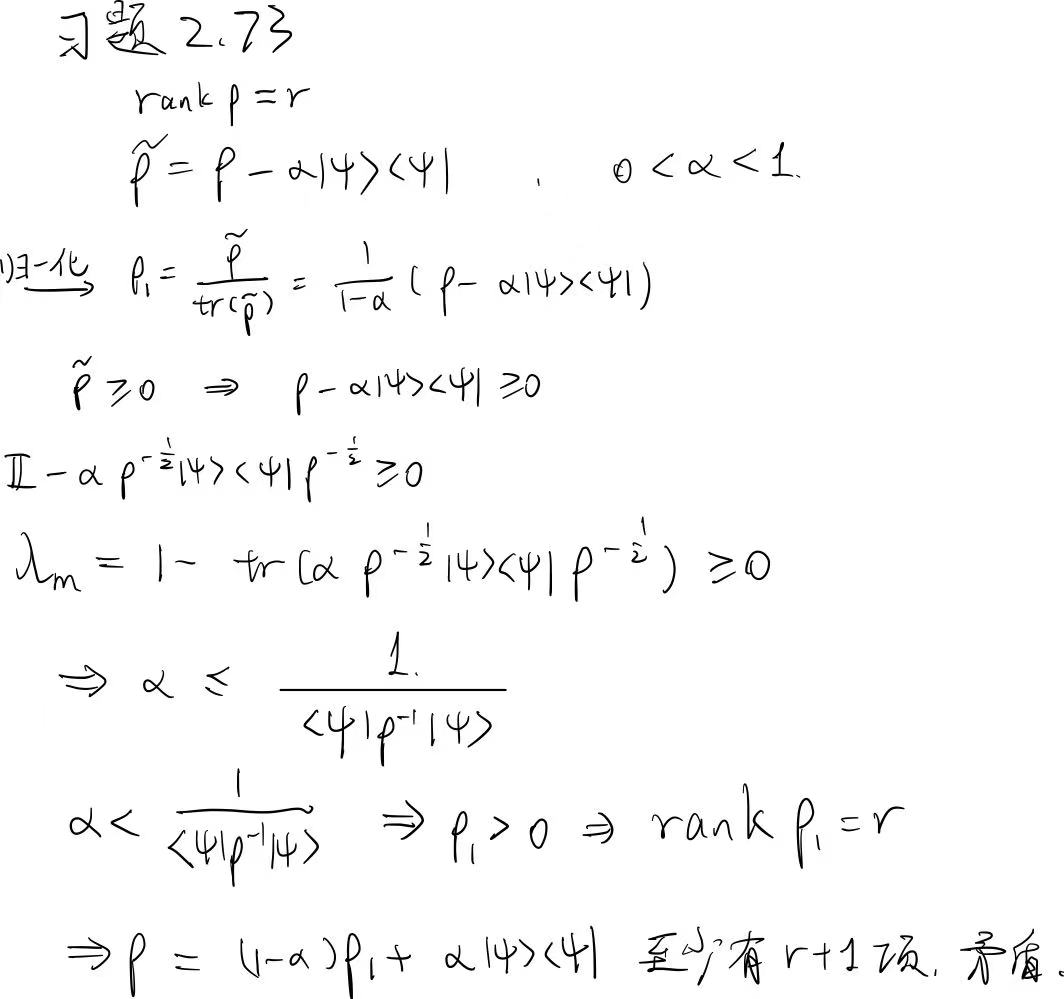 习题 2.73
rank ρ = r
ρ̃ = ρ - α|ψ><ψ| . 0 < α < 1.
归一化 ρ₁ = ρ̃ / tr(ρ̃) = 1/(1-α) (ρ - α|ψ><ψ|)
ρ̃ ≥ 0 ⇒ ρ - α|ψ><ψ| ≥ 0
𝕀 - α ρ^{-1/2}|ψ><ψ|ρ^{-1/2} ≥ 0
λₘ = 1 - tr(α ρ^{-1/2}|ψ><ψ|ρ^{-1/2}) ≥ 0
⇒ α ≤ 1. / <ψ|ρ⁻¹|ψ>
α < 1 / <ψ|ρ⁻¹|ψ> ⇒ ρ₁ > 0 ⇒ rank ρ₁ = r
⇒ ρ = (1-α)ρ₁ + α|ψ><ψ| 至少有 r+1 项. 矛盾.